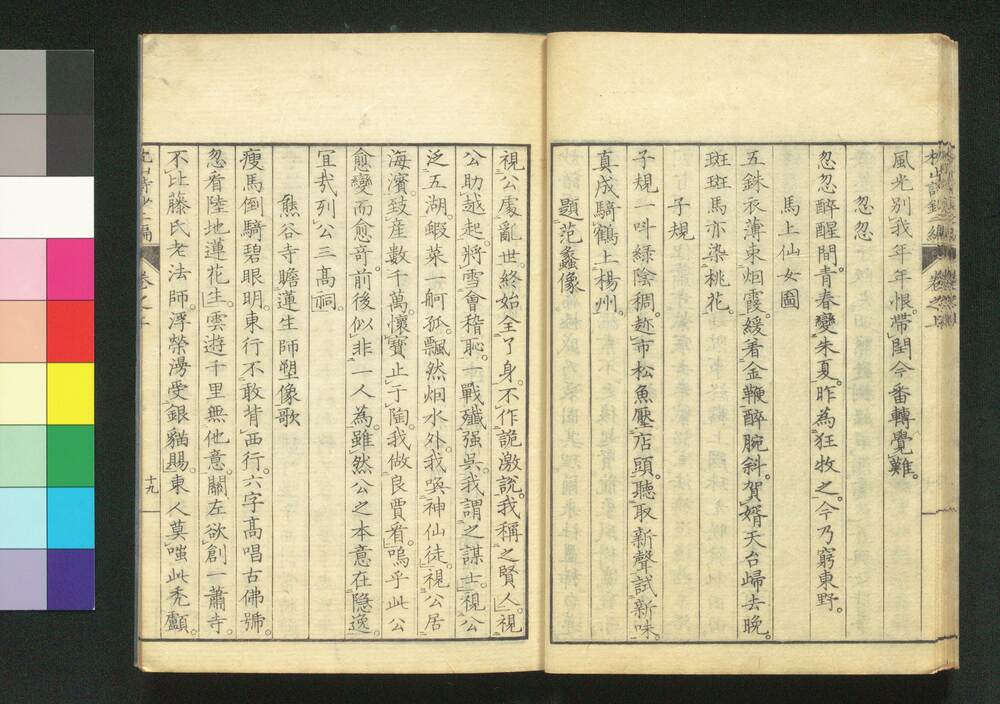 風光別我年年恨。帶閏今番轉覺難。
忽忽
忽忽醉醒間。青春變朱夏。昨為狂牧之。今乃窮東野。
馬上仙女圖
五銖衣薄束烟霞。緩著金鞭醉腕斜。賀婿天台歸去晚。
斑斑馬亦染桃花。
子規
子規一叫綠陰稠。趂市松魚壓店頭。聽取新聲試新味。
真成騎鶴上楊州。
題范蠡像
視公處亂世。終始全了身。不作詭激說。我稱之賢人。視
公助越起。將雪會稽恥。一戰殲强吳。我謂之謀士。視公
泛五湖。蝦菜一舸孤。飄然烟水外。我喚神仙徒。視公居
海濱。致產數千萬。懷寶止于陶。我做良賈看。嗚乎此公
愈變而愈奇。前後似非一人為。雖然公之本意在隱逸。
宜哉列公三高祠。
熊谷寺瞻蓮生師塑像歌
瘦馬倒騎碧眼明。東行不敢背西行。六字高唱古佛號。
忽看陸地蓮花生。雲遊千里無他意。關左欲創一蕭寺。
不比藤氏老法師。浮榮漫受銀貓賜。東人莫嗤此禿顱。
卷之
十九